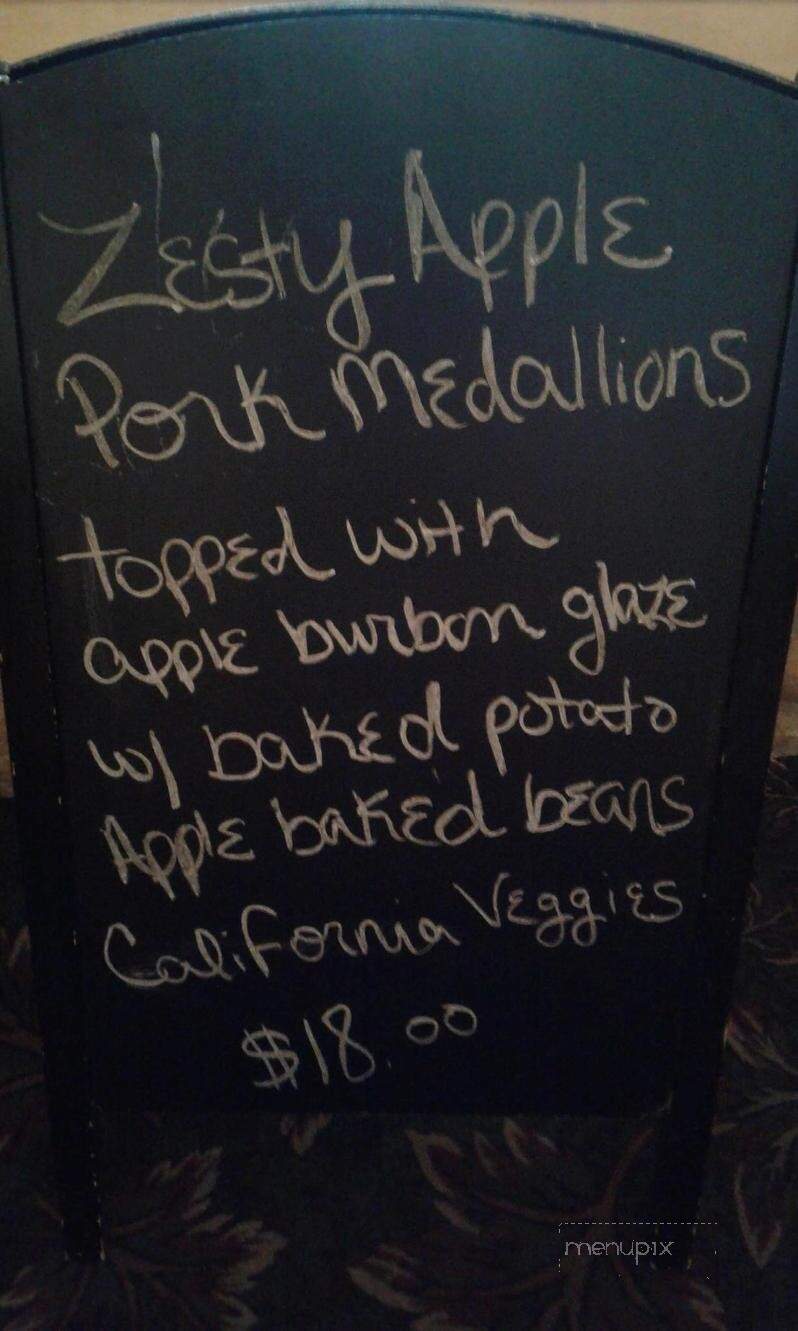 Zesty Apple
Pork Medallions
topped with
apple burbon glaze
w/ baked potato
Apple baked beans
California Veggies
$18.00
menupix